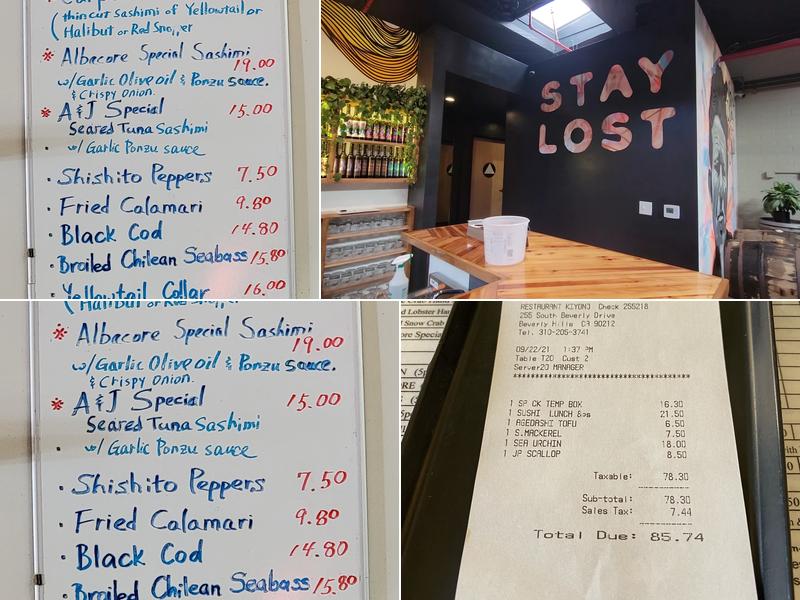 thin cut Sashimi of Yellowtail or
Halibut or Red Snapper
* Albacore Special Sashimi
19.00
w/Garlic Olive oil & Ponzu sauce.
& Crispy onion.
* A&J Special 15.00
Seared Tuna Sashimi
w/ Garlic Ponzu sauce
· Shishito Peppers 7.50
· Fried Calamari 9.80
· Black Cod 14.80
· Broiled Chilean Seabass 15.80
· Yellowtail Collar 16.00
STAY
LOST
(Halibut or Red Snapper
* Albacore Special Sashimi
19.00
w/Garlic Olive oil & Ponzu sauce.
& Crispy onion.
* A&J Special 15.00
Seared Tuna Sashimi
· w/ Garlic Ponzu sauce
· Shishito Peppers 7.50
· Fried Calamari 9.80
· Black Cod 14.80
· Broiled Chilean Seabass 15.80
Lobster
Snow Crab
RESTAURANT KIYONO Check 255218
255 South Beverly Drive
Beverly Hills CA 90212
Tel. 310-205-3741
09/22/21 1:37 PM
Table T20 Cust 2
Server20 MANAGER
1 SP CK TEMP BOX 16.30
1 SUSHI LUNCH 8ps 21.50
1 AGEDASHI TOFU 6.50
1 S.MACKEREL 7.50
1 SEA URCHIN 18.00
1 JP SCALLOP 8.50
Taxable: 78.30
Sub-total: 78.30
Sales Tax: 7.44
Total Due: 85.74